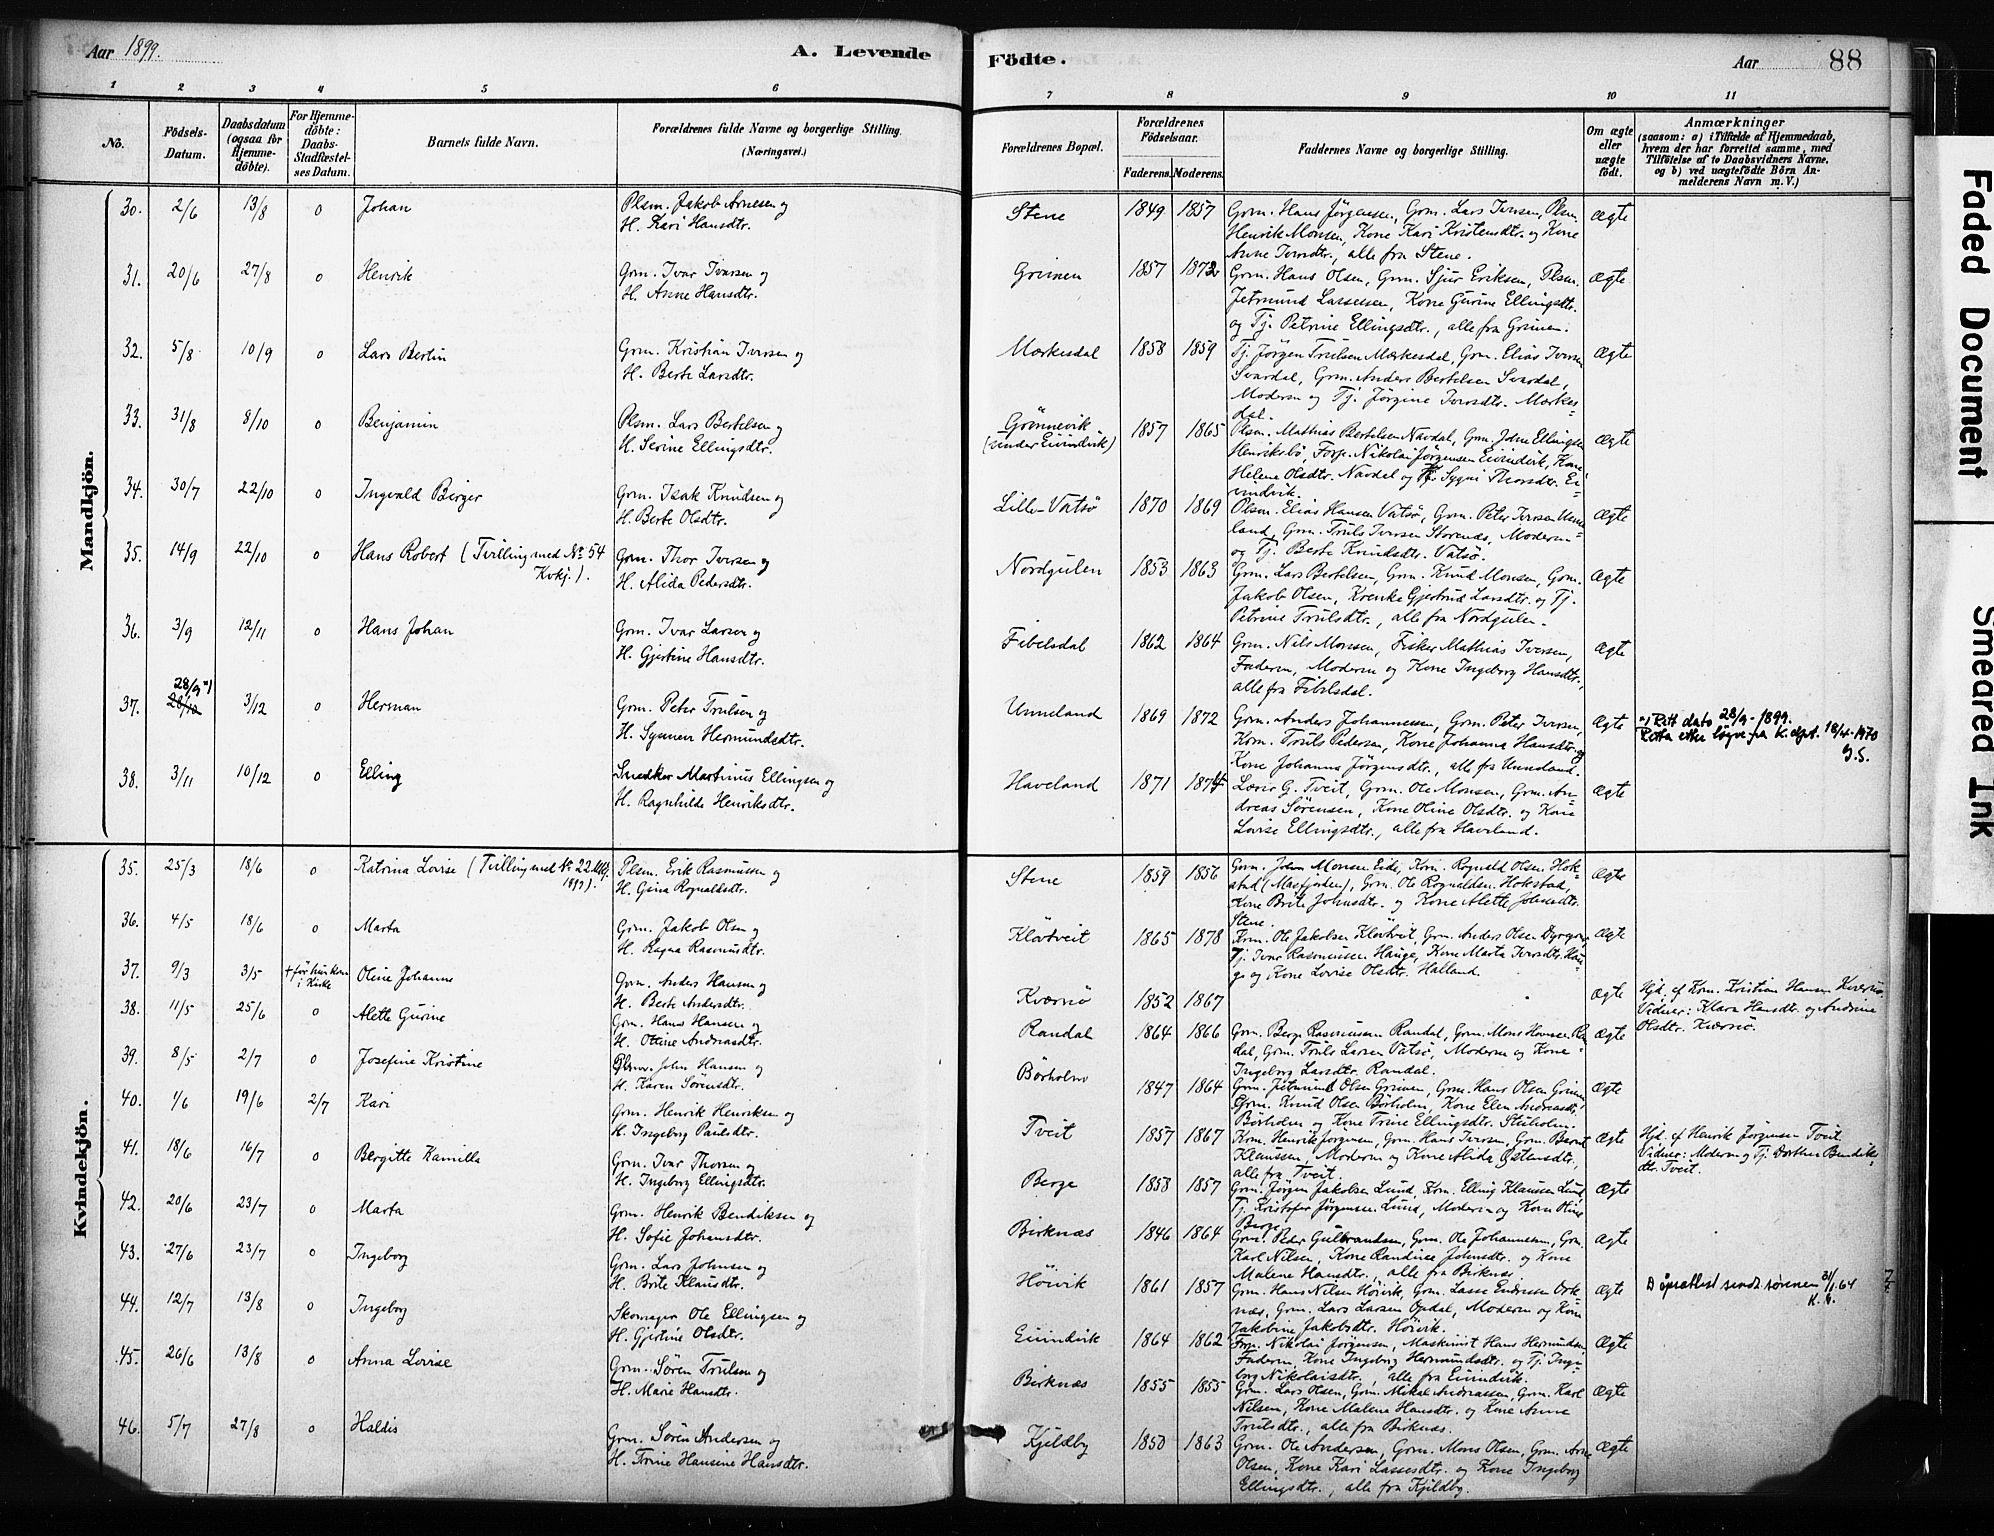 Aar 1899.
A. Levende
Födte.
Aar
88
1 2 3 4 5 6
7 8 9 10 11
No.
Födsels-Datum.
Daabsdatum (ogsaa for Hjemme-döbte).
For Hjemme-döbte: Daabs-Stadfæstel-ses Datum.
Barnets fulde Navn.
Forældrenes fulde Navne og borgerlige Stilling.
(Næringsvei.)
Forældrenes Bopæl.
Forældrenes Födselsaar.
Faderens. Moderens.
Faddernes Navne og borgerlige Stilling.
Om ægte eller uægte födt.
Anmærkninger
(saasom: a) i Tilfælde af Hjemmedaab,
hvem der har forrettet samme, med
Tilföielse af to Daabsvidners Navne,
og b) ved uægtefödte Börn An-
melderens Navn m. V.)
Mandkjön.
30. 2/6 13/8 0 Johan
Plsm. Jakob Arnesen og
H. Kari Hansdtr.
Stene 1849 1857
Grm. Hans Jörgensen, Grm. Lars Iversen, Plsm.
Henrik Monsen, Kone Kari Kristensdtr. og Kone
Anne Iversdtr., alle fra Stene.
Ægte
31. 20/6 27/8 0 Henrik
Grm. Ivar Ivarsen og
H. Anne Hansdtr.
Grimen 1857 1872
Grm. Hans Olsen, Grm. Sjur Eriksen, Plsm.
Jetmund Lassesen, Kone Gurine Ellingsdtr.
og Tj. Petrine Ellingsdtr., alle fra Grimen.
Ægte
32. 5/8 10/9 0 Lars Bertin
Grm. Kristian Iversen og
H. Berte Larsdtr.
Mærkesdal 1858 1859
Tj. Jörgen Trulsen Mærkesdal, Grm. Elias Iversen
Svardal, Grm. Anders Bertelsen Svardal,
Moderen og Tj. Jörgine Iversdtr. Mærkes-
dal.
Ægte
33. 31/8 8/10 0 Benjamin
Plsm. Lars Bertelsen og
H. Serine Ellingsdtr.
Grönnevik
(under Eivindvik) 1857 1865
Plsm. Mathias Bertelsen Navdal, Grm. John Ellingsen
Henriksbö, Forp. Nikolai Jörgensen Eivindvik, Kone
Helene Olsdtr. Navdal og Tj. Sygni Thorsdtr. Ei-
vindvik.
Ægte
34. 30/7 22/10 0 Ingvald Birger
Grm. Isak Knudsen og
H. Berte Olsdtr.
Lille-Vatsö 1870 1869
Plsm. Elias Hansen Vatsö, Grm. Peter Iversen Unne-
land, Grm. Truls Iversen Storenæs, Moderen
og Tj. Berte Knudsdtr. Vatsö.
Ægte
35. 14/9 22/10 0 Hans Robert (Tvilling med No 54
Kvkj.).
Grm. Thor Iversen og
H. Alida Pedersdtr.
Nordgulen 1853 1863
Grm. Lars Bertelsen, Grm. Knud Monsen, Grm.
Jakob Olsen, Kvenke Gjertrud Larsdtr. og Tj.
Petrine Trulsdtr., alle fra Nordgulen.
Ægte
36. 3/9 12/11 0 Hans Johan
Grm. Ivar Larsen og
H. Gjertine Hansdtr.
Fibelsdal 1862 1864
Grm. Nils Monsen, Fisker Mathias Iversen,
Faderen, Moderen og Kone Ingeborg Hansdtr.,
alle fra Fibelsdal.
Ægte
28/9 *)
37. 28/10 3/12 0 Herman
Grm. Peter Trulsen og
H. Synneva Hermundsdtr.
Unneland 1869 1872
Grm. Anders Johannessen, Grm. Peter Iversen,
Krm. Truls Pedersen, Kone Johanna Hansdtr. og
Kone Johanna Jörgensdtr., alle fra Unneland.
Ægte
*) Rett dato 28/9-1899.
Retta etter løyve frå K.dept. 18/4-1970
G.S.
38. 3/11 10/12 0 Elling
Snedker Martinus Ellingsen og
H. Ragnhilde Henriksdtr.
Haveland 1871 1874
Lærer G. Tveit, Grm. Ole Monsen, Grm. An-
dreas Sörensen, Kone Oline Olsdtr. og Kone
Lovise Ellingsdtr., alle fra Haveland.
Ægte
Kvindekjön.
35. 25/3 18/6 0 Katrina Lovise (Tvilling med No 22 Mkj.
1899).
Plsm. Erik Rasmussen og
H. Gsina Rognaldsdtr.
Stene 1859 1856
Grm. John Monsen Eide, Krm. Rognald Olsen Hok-
stad (Masfjorden), Grm. Ole Rognaldsen Hokstad,
Kone Brite Johnsdtr. og Kone Alette Johnsdtr.
Stene.
Ægte
36. 4/5 18/6 0 Marta
Grm. Jakob Olsen og
H. Ragna Rasmusdtr.
Klövtveit 1865 1878
Krm. Ole Jakobsen Klövtvit, Grm. Anders Olsen
Tj. Ivar Rasmussen Hauge, Kone Marta Iversdtr. Hau-
ge og Kone Lovise Olsdtr. Halland.
Ægte
37. 9/3 3/5 † för hun kom
i Kirke Oline Johanne
Grm. Anders Hansen og
H. Berte Andersdtr.
Kværnö 1852 1867
Ægte
Hjd. af Krm. Kristian Hansen Kværnö.
Vidner: Klara Hansdtr. og Andrine
Olsdtr. Kværnö.
38. 11/5 25/6 0 Alette Gurine
Grm. Hans Hansen og
H. Oline Andreasdtr.
Randal 1864 1866
Grm. Berge Rasmussen Randal, Grm. Mons Hansen Ran-
dal, Grm. Truls Larsen Vatsö, Moderen og Kone
Ingeborg Larsdtr. Randal.
Ægte
39. 8/5 2/7 0 Josefine Kristine
Plsm. John Hansen og
H. Karen Sörensdtr.
Börholm 1847 1864
Grm. Jetmund Olsen Grimen, Grm. Hans Olsen Grimen,
Grm. Knud Olsen Börholm, Kone Elen Andreasdtr.
Börholm og Kone Trine Ellingsdtr. Stuholm.
Ægte
40. 1/6 19/6 2/7 Kari
Grm. Henrik Henriksen og
H. Ingeborg Paulsdtr.
Tveit 1857 1867
Krm. Henrik Jörgensen, Grm. Hans Iversen, Grm. Bernt
Klaussen, Moderen og Kone Alida Östensdtr.,
alle fra Tveit.
Ægte
Hjd. af Henrik Jörgensen Tveit.
Vidner: Moderen og Tj. Dorthea Bendiks-
dtr. Tveit.
41. 18/6 16/7 0 Bergitte Kamilla
Grm. Ivar Thorsen og
H. Ingeborg Ellingsdtr.
Berge 1858 1857
Grm. Jörgen Jakobsen Lund, Krm. Elling Klaussen Lund,
Tj. Kristofer Jörgensen Lund, Moderen og Kone
Berge.
Ægte
42. 20/6 23/7 0 Marta
Grm. Henrik Bendiksen og
H. Sofie Johansdtr.
Birknæs 1846 1864
Grm. Peder Gulbrandsen, Grm. Ole Johannesen, Grm.
Karl Nilsen, Kone Randine Johnsdtr. og Kone
Malene Hansdtr., alle fra Birknæs.
Ægte
43. 27/6 23/7 0 Ingeborg
Grm. Lars Johnsen og
H. Brite Klausdtr.
Höivik 1861 1857
Grm. Hans Nilsen Höivik, Grm. Lasse Endresen Ork-
næs, Grm. Lars Larsen Opdal, Moderen og Kone
Jakobine Jakobsdtr. Höivik.
Ægte
31/1.64
K.
44. 12/7 13/8 0 Ingeborg
Skomager Ole Ellingsen og
H. Gjertine Olsdtr.
Eivindvik 1864 1862
Forp. Nikolai Jörgensen, Maskinist Hans Hermundsen,
Faderen, Kone Ingeborg Hermundsdtr. og Tj. Inge-
borg Nikolaisdtr., alle fra Eivindvik.
Ægte
45. 26/6 13/8 0 Anna Lovise
Grm. Sören Trulsen og
H. Marie Hansdtr.
Birknæs 1855 1855
Grm. Lars Olsen, Grm. Mikal Andreassen, Grm. Karl
Nilsen, Kone Malene Hansdtr. og Kone Anne
Trulsdtr., alle fra Birknæs.
Ægte
46. 5/7 27/8 0 Haldis
Grm. Sören Andersen og
H. Trine Hansine Hansdtr.
Kjeldby 1850 1863
Grm. Ole Andersen, Grm. Mons Olsen, Grm. Arne
Olsen, Kone Kari Lassesdtr. og Kone Ingeborg
Ellingsdtr., alle fra Kjeldby.
Ægte
Faded Document
Smeared Ink